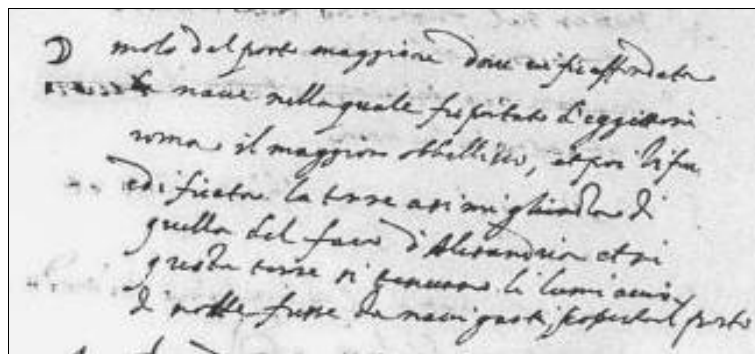 D molo del porto maggiore dove vi fu affondata
la nave nella quale fu portato d'eggitto in
roma il maggior obbellisco, et poi li fu
edificata la torre a simiglianza di
quella del faro d'Alexandria et in
questa torre si tenevano li lumi acciò
di notte fusse da naviganti scoperto il porto